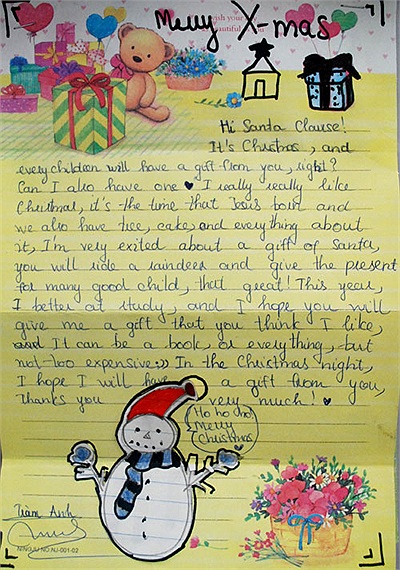 Merry X-mas
Hi Santa Clause!
It's Christmas, and
every children will have a gift from you, right?
Can I also have one ♥ I really really like
Christmas, it's the time that Jesus born and
we also have tree, cake, and everything about
it, I'm very exited about a gift of Santa,
you will ride a raindeer and give the present
for many good child, that great! This year,
I better at study, and I hope you will
give me a gift that you think I like,
It can be a book, or everything, but
not too expensive;)) In the Christmas night,
I hope I will have a gift from you,
Thanks you very much! ♥
Ho ho ho
Merry
Christmas
Trâm Anh
NINGJU NO.NJ-001-02